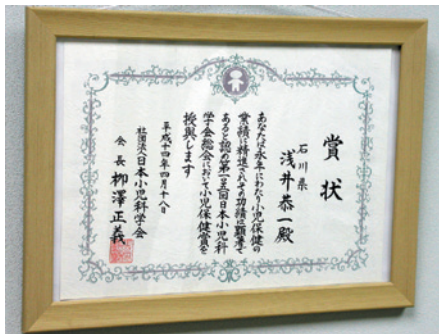 賞状
石川県
浅井恭一殿
あなたは永年にわたり小児保健の
業績に精進されその功績は顕著で
あると認め第一〇五回日本小児科
学会総会において小児保健賞を
授與します
平成十四年四月十八日
社団法人日本小児科学会
会長 柳澤正義